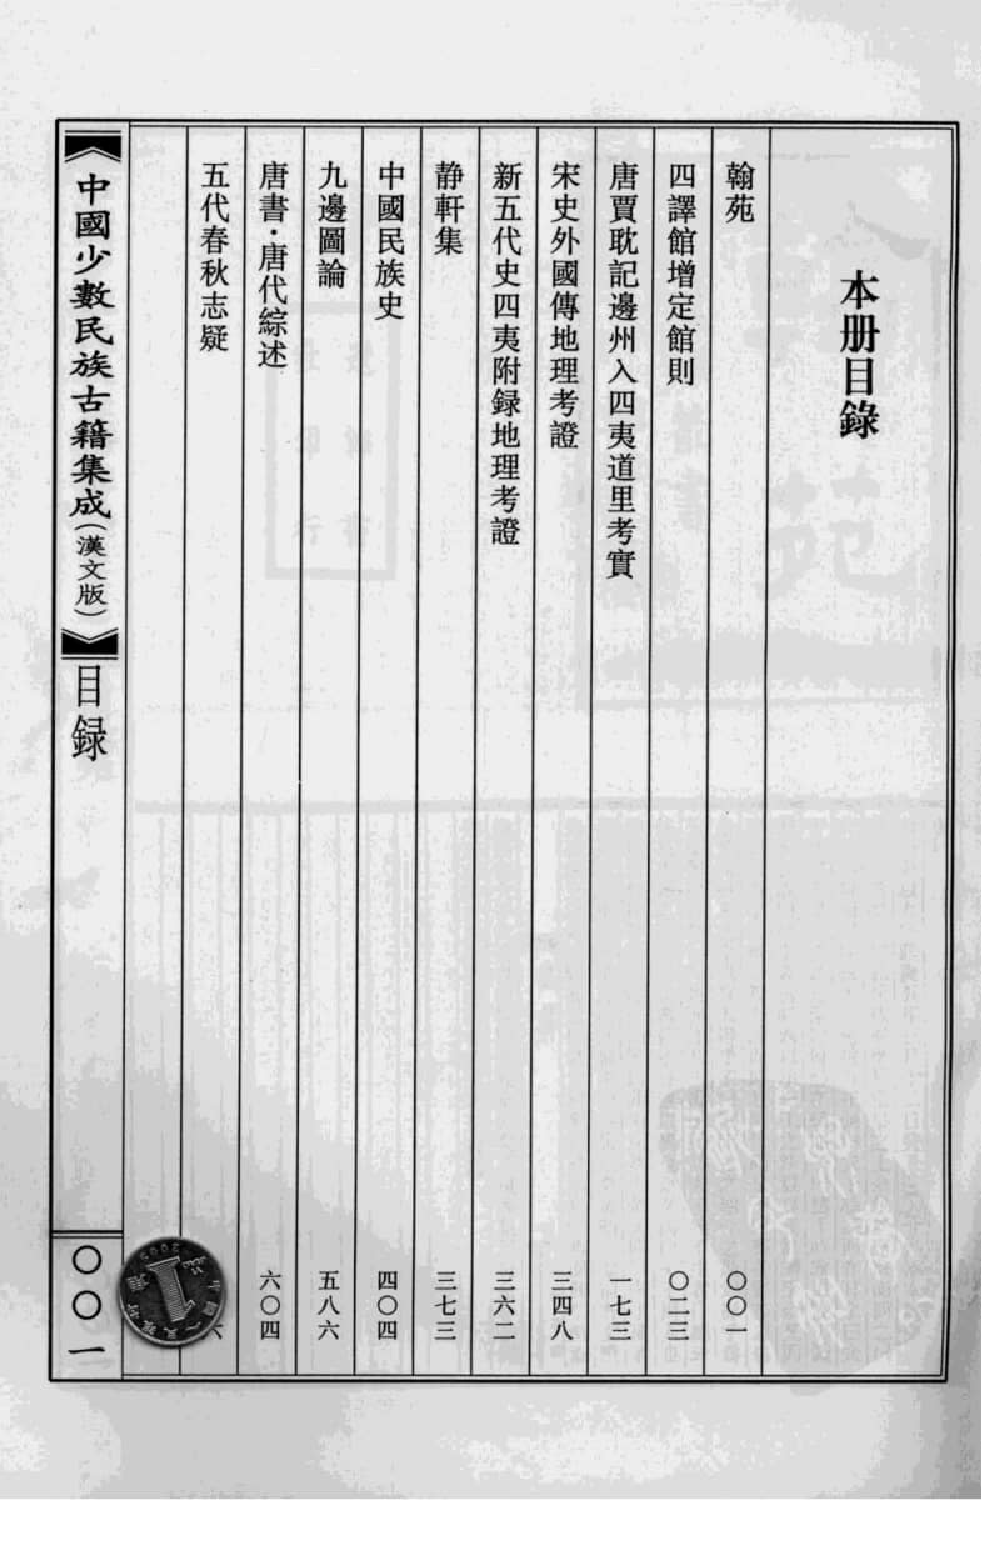 本册目錄
翰苑 〇〇一
四譯館增定館則 〇二三
唐賈耽記邊州入四夷道里考實 一七三
宋史外國傳地理考證 三四八
新五代史四夷附録地理考證 三六二
静軒集 三七三
中國民族史 四〇四
九邊圖論 五八六
唐書·唐代綜述 六〇四
五代春秋志疑
中國少數民族古籍集成(漢文版)
目録
〇〇一
1